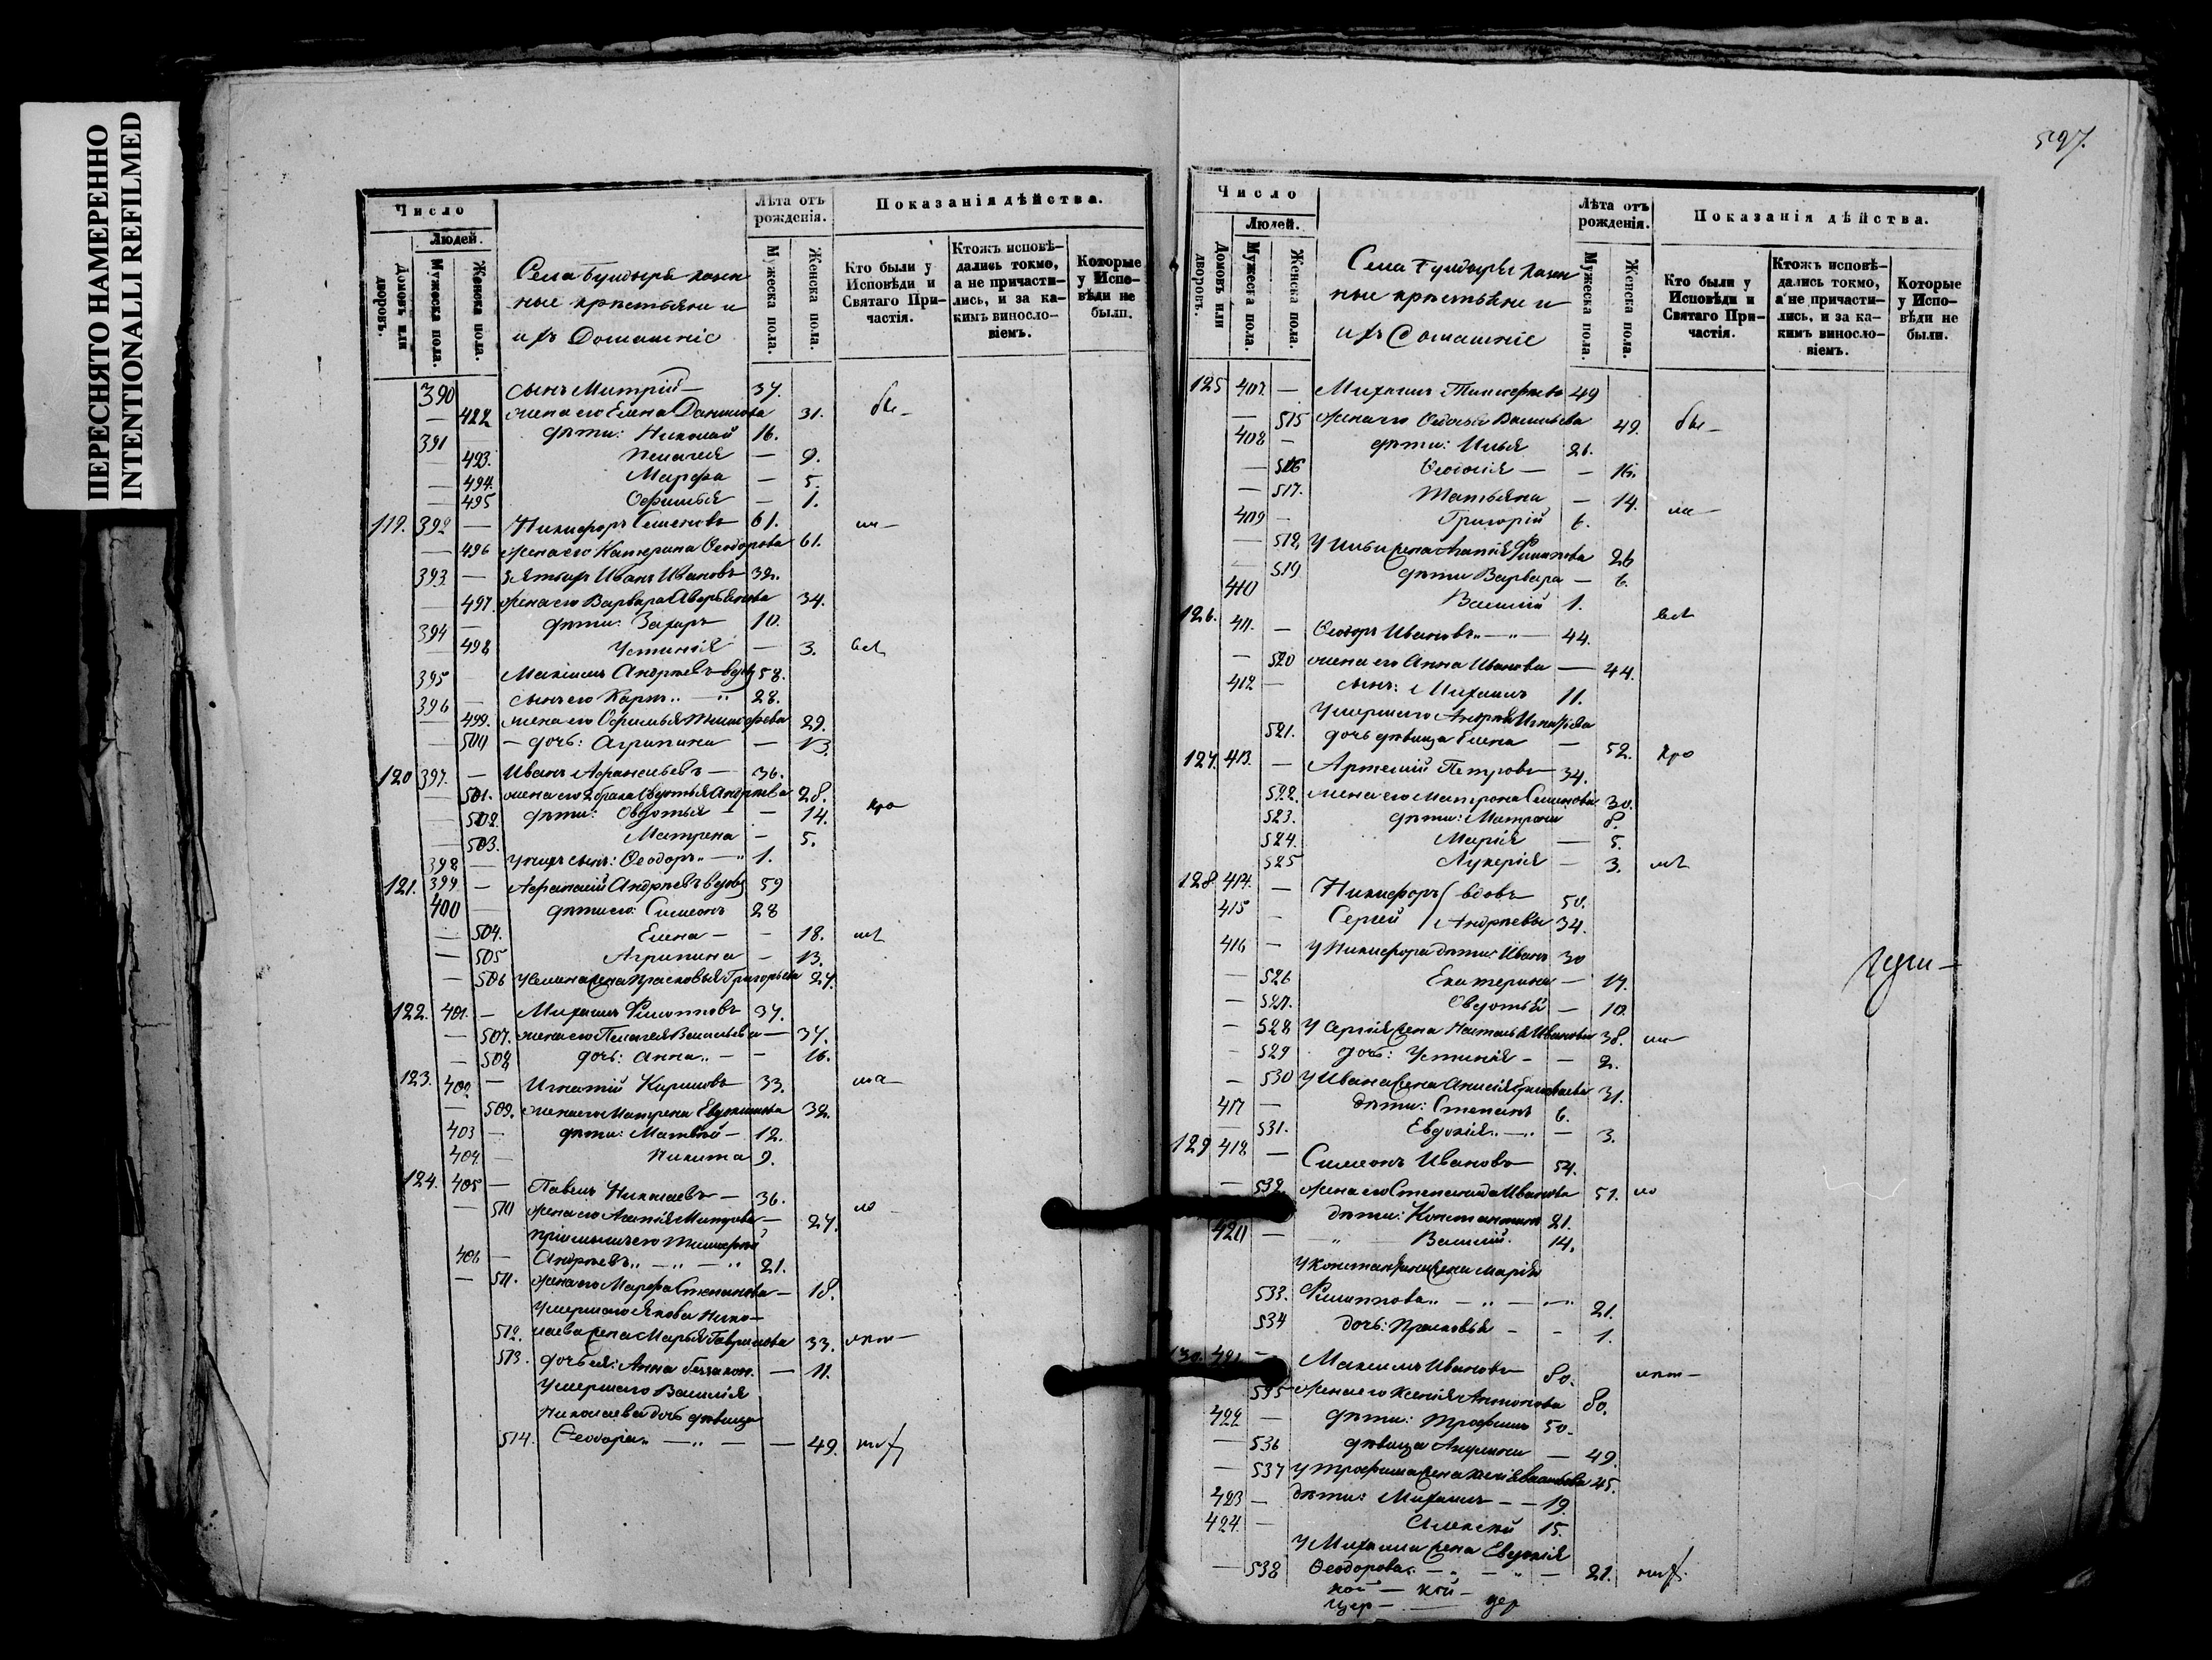 ПЕРЕСНЯТО НАМЕРЕННО
INTENTIONALLI REFILMED
Число
Людей.
Домовъ или дворовъ.
Мужеска пола.
Женска пола.
Села Бундыря казен
ные крестьяни и
ихъ Домашніе
Лѣта отъ рожденія.
Мужеска пола.
Женска пола.
Показанія дѣйства.
Кто были у Исповѣди и Святаго Причастія.
Ктожъ исповѣ-
дались токмо,
а не причасти-
лись, и за ка-
кимъ винословіемъ.
Которые у Исповѣди не были.
390 сынъ Митрій — 37.
— 492 жена его Елена Данилова 31. бы —
391 дѣти: Николай 16.
— 493. Пелагея — 9.
— 494. Марфа — 5.
— 495 Офимья — 1.
119. 392 — Никифоръ Семеновъ 61. ли —
— 496 жена его Катерина Ѳеодорова 61.
393. — зять ихъ Иванъ Ивановъ 32.
— 497. жена его Варвара 34.
394 — дѣти: Захаръ 10.
— 498 Устинія — 3. всѣ
395 Максимъ Андреевъ вдовъ 58.
396 — сынъ его Карпъ 28.
— 499. жена его Офимья Тимофеева 29.
— 500 — дочь: Агрипина — 13.
120 397. — Иванъ Афанасьевъ — 36.
— 501. жена его 2 брака Овдотья Андреева 28.
— 502. дѣти: Овдотья — 14. кро
— 503. Матрена — 5.
398 — у нихъ сынъ: Ѳеодоръ 1.
121. 399 — Афанасій Андреевъ вдовъ 59
400 — дѣти его: Симеонъ 28
— 504. Елена — 18. мѣ
— 505 Агрипина — 13.
— 506 жена Прасковья Григорьева 27.
122. 401. — Михаилъ Филипповъ 37.
— 507. жена его Пелагея Васильева — 37.
— 508 дочь: Анна — 16.
123. 402. — Игнатій Кириловъ 33. ма —
— 509. жена его Матрена Евдокимова 32.
403 — дѣти: Матвей — 12.
404. — Никита 9.
124. 405 — Павелъ Николаевъ — 36.
— 510 жена его Митрева — 27. ло
пріемышъ его Тимофей
406 — Андреевъ 21.
— 511. жена его Марфа Степанова — 18.
Умершаго Якова Нико-
512. лаева жена Марья Гаврилова 33. лет —
513. дочь ея: Анна беззакон. — 11.
Умершаго Василія
Николаева дочь дѣвица
514. Ѳеодора — 49.
597.
Число
Людей.
Домовъ или дворовъ.
Мужеска пола.
Женска пола.
Села Бундыря казен
ные крестьяни и
ихъ Домашніе
Лѣта отъ рожденія.
Мужеска пола.
Женска пола.
Показанія дѣйства.
Кто были у Исповѣди и Святаго Причастія.
Ктожъ исповѣ-
дались токмо,
а не причасти-
лись, и за ка-
кимъ винословіемъ.
Которые у Исповѣди не были.
125 407. — Михаилъ Тимофеевъ 49
— 515 жена его Ѳедосья Васильева 49. бы —
408 — дѣти: Илья 26.
— 516 Ѳеодосія — 16.
— 517. Татьяна — 14. ли —
409 — Григорій 6.
— 518. у Ильи жена Филипова 26
519 дѣти Варвара — 6.
410 Василій 1.
126. 411. — Ѳеодоръ Ивановъ 44. всѣ
— 520 жена его Анна Иванова — 44.
412 — сынъ: Михаилъ 11.
Умершаго Андрея Игнатьева
521. дочь дѣвица Елена — 52. кро
127. 413. — Артемій Петровъ 34.
522. жена его Матрона Семенова 30.
523. дѣти: Матрона 8.
524. Марія — 5.
525 Лукерія — 3. мѣ
128. 414. — Никифоръ вдовъ 50.
415 — Сергей Андреевы 34.
416 — у Никифора дѣти: Иванъ 30
— 526 Екатерина — 14.
— 527. Овдотья — 10.
— 528 у Сергія жена Наталья Иванова 38. ма —
— 529 дочь: Устинія — 2.
— 530 у Ивана жена Анисія 31.
417 — дѣти: Степанъ 6.
— 531. Евдокія — 3.
129 418 — Симеонъ Ивановъ 54.
— 532. жена его Степанида Иванова 51. ло
дѣти: Константинъ 21.
420 — Василій. 14.
у Константина жена Марія
533. Филиппова 21.
534 дочь: Прасковья — 1.
130. 421 — Максимъ Ивановъ 80. лет —
535 жена его Ксенія Антонова 80.
422 — дѣти: Трофимъ 50.
— 536 дѣвица Акулина — 49.
— 537 у Трофима жена 45.
423 — дѣти: Михаилъ — 19.
424. — Алексѣй 15.
у Михаила жена Евдокія
— 538 Ѳеодорова 21.